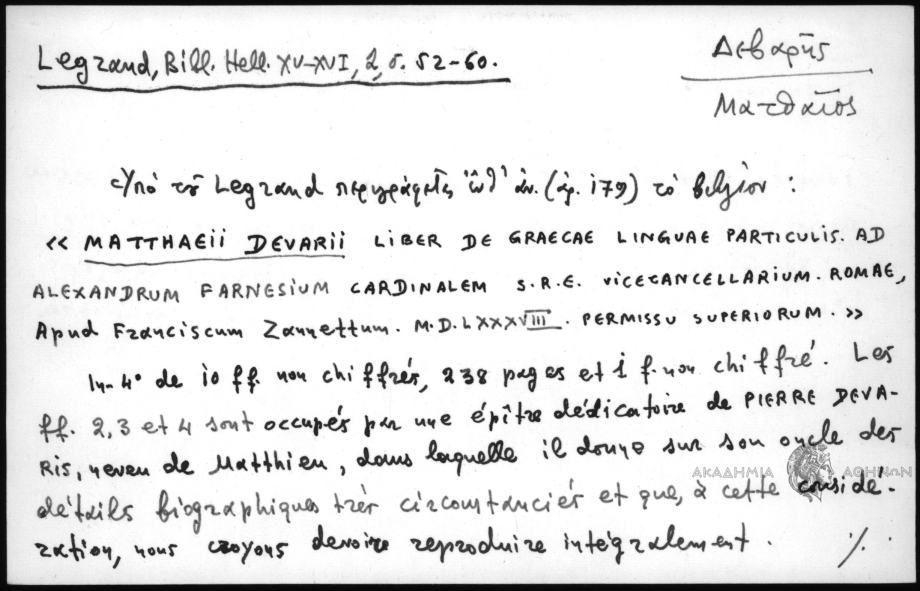 Legrand, Bibl. Hell. XV-XVI, 2, σ. 52-60.
Δεβαρῆς
Ματθαῖος
Ὑπό τοῦ Legrand περιγράφεται ὑπ' ἀρ. (ἀρ. 179) τό βιβλίον :
« MATTHAEii DEVARii LIBER DE GRAECAE LINGUAE PARTICULIS. AD
ALEXANDRUM FARNESIUM CARDINALEM S.R.E. VICECANCELLARIUM. ROMAE,
Apud Franciscum Zannettum. M.D.LXXXVIII. PERMISSU SUPERIORUM. »
In-4° de 10 ff. non chiffrés, 238 pages et 1 f. non chiffré. Les
ff. 2, 3 et 4 sont occupés par une épître dédicatoire de PIERRE DEVA-
RIS, neveu de Matthieu, dans laquelle il donne sur son oncle des
ΑΚΑΔΗΜΙΑ ΑΘΗΝΩΝ
détails biographiques très circonstanciés et que, à cette considé-
ration, nous croyons devoire reproduire intégralement. ./.